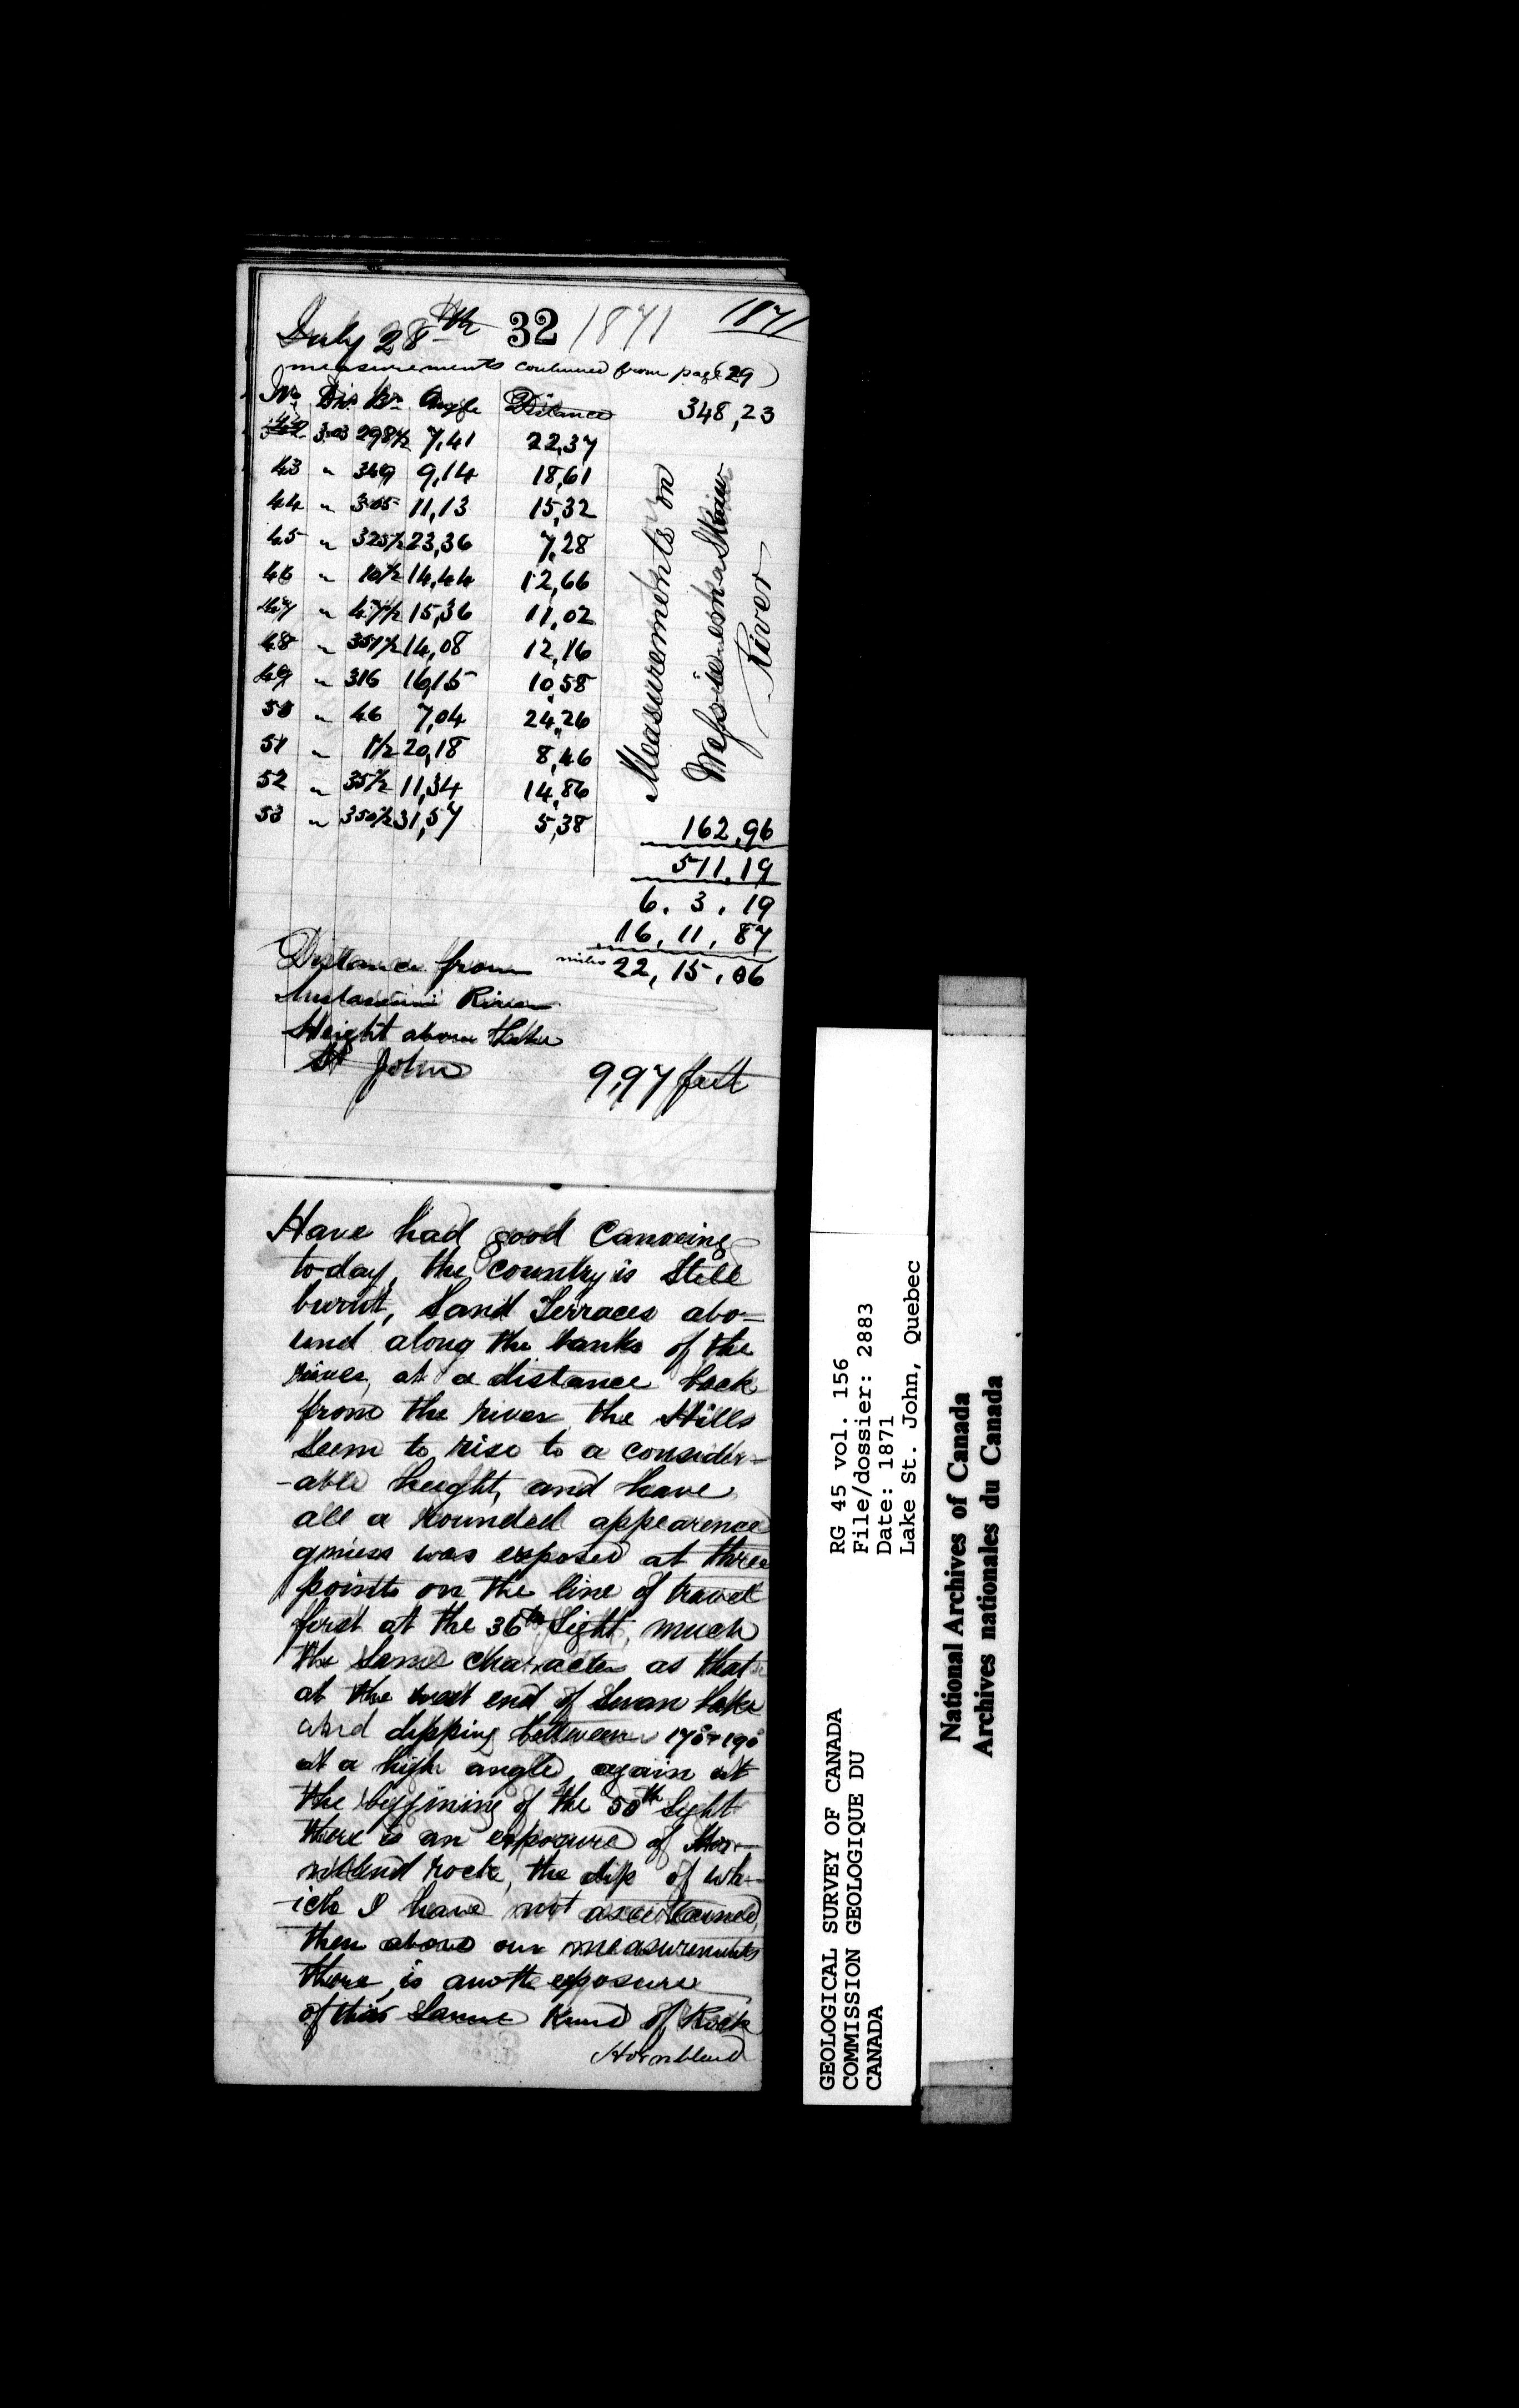 July 28th 32 1871 1871
measurements continued from page (29)
No. Dis. Br. Angle Distance 348,23
42 3.03 298½ 7,41 22,37
43 " 349 9,14 18,61
44 " 305 11,13 15,32
45 " 325½ 23,36 7,28
46 " 10½ 14,44 12,66
47 " 47½ 15,36 11,02
48 " 351½ 14,08 12,16
49 " 316 16,15 10,58
50 " 46 7,04 24,26
51 " 1½ 20,18 8,46
52 " 35½ 11,34 14,86
53 " 350½ 31,57 5,38
Measurements on
River
162,96
511,19
6. 3. 19
16, 11, 87
Distance from miles 22, 15, 06
River
Height above Lake
St John 9,97 feet
Have had good Canoeing
to-day, the country is still
burnt, Sand Terraces abo=
und along the banks of the
river, at a distance back
from the river the Hills
seem to rise to a consider=
-able height, and have
all a rounded appearence
gniess was exposed at three
points on the line of travel
first at the 36th Sight, much
the same character as that
at the west end of Swan Lake
and dipping between 170° & 190°
at a high angle, again at
the beggining of the 50th Sight
there is an exposure of Hor-
nblend rock, the dip of wh-
-ich I have not ascertained,
then above our measurements
there, is anothe exposure
of this same kind of Rock
Hornblend
GEOLOGICAL SURVEY OF CANADA
COMMISSION GEOLOGIQUE DU
CANADA
RG 45 vol. 156
File/dossier: 2883
Date: 1871
Lake St. John, Quebec
National Archives of Canada
Archives nationales du Canada